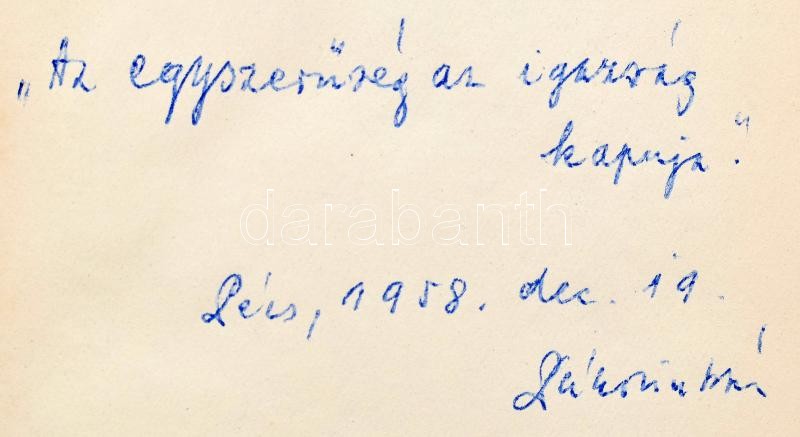 „Az egyszerűség az igazság
kapuja."
darabanth
Pécs, 1958. dec. 19.